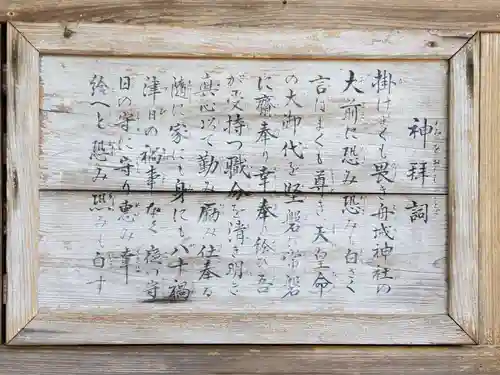 神拝詞
掛けまくも畏き舟城神社の
大前に恐み恐みも白さく
言はまくも尊き天皇命
の大御代を堅磐に常磐
に齋奉り幸奉り給ひ吾
が受持つ職分を清き明き
真心以て勤み励み仕奉る
随に家にも身にも八十禍
津日の禍事なく夜の守
日の守に守り恵み幸
給へと恐み恐みも白す